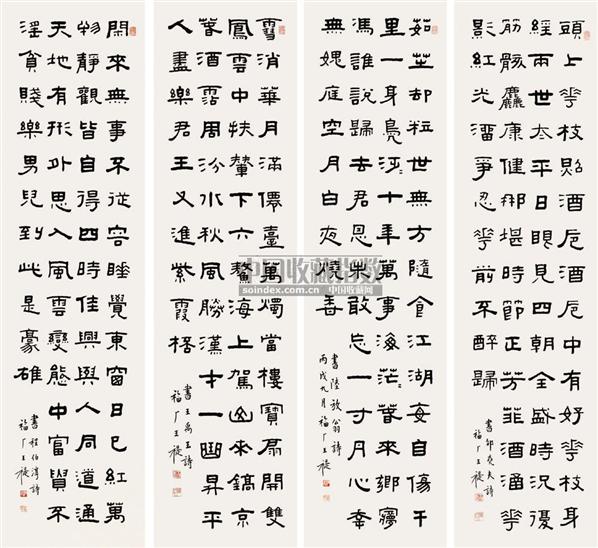 頭上華枝照酒卮酒卮中有好華枝身
經兩世太平日眼見四朝全盛時況復
筋骸麤康健那堪時節正芳菲酒涵華
影紅光溜爭忍華前不醉歸
書邵堯夫詩
福厂王禔
茹芝却粒世無方隨食江湖每自傷千
里一身鳧泛〻十年萬事海茫〻春來鄉夢
馮誰說歸去君恩未敢忘一寸丹心幸
無媿庭空月白夜燒香
書陸放翁詩
丙戌九月福厂王禔
雪消華月滿僊臺萬燭當樓寶扇開雙
鳳雲中扶輦下六鼇海上駕山來鎬京
春酒霑周汾水秋風勝漢才一曲昇平
人盡樂君王又進紫霞桮
書王禹玉詩
福厂王禔
閑來無事不從容睡覺東窗日已紅萬
物靜觀皆自得四時佳興與人同道通
天地有形外思入風雲變態中富貴不
淫貧賤樂男兒到此是豪雄
書程伯淳詩
福厂王禔
中国收藏指数
soindex.com.cn 中国收藏网